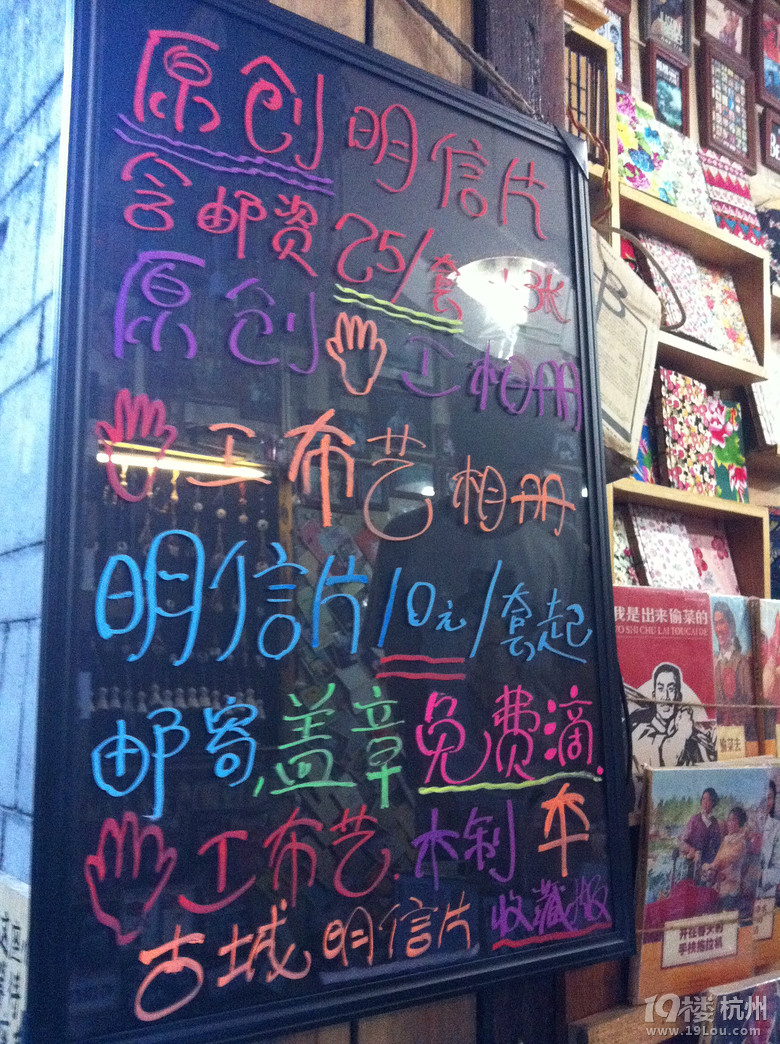 原创明信片
含邮资25/套 张
原创 工相册
工布艺相册
明信片10元/套起
邮寄,盖章免费滴.
工布艺.木制本
古城明信片 收藏版
B
我是出来偷菜的
WO SHI CHU LAI TOU CAI DE
偷菜去
手扶拖拉机
19楼 杭州
www.19Lou.com